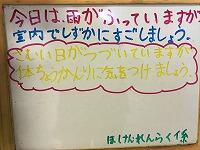 今日は、雨がふっていますが
室内でしずかにすごしましょう。
さむい日がつづいていますが
体ちょうかんりに気をつけましょう。
ほけんれんらく係